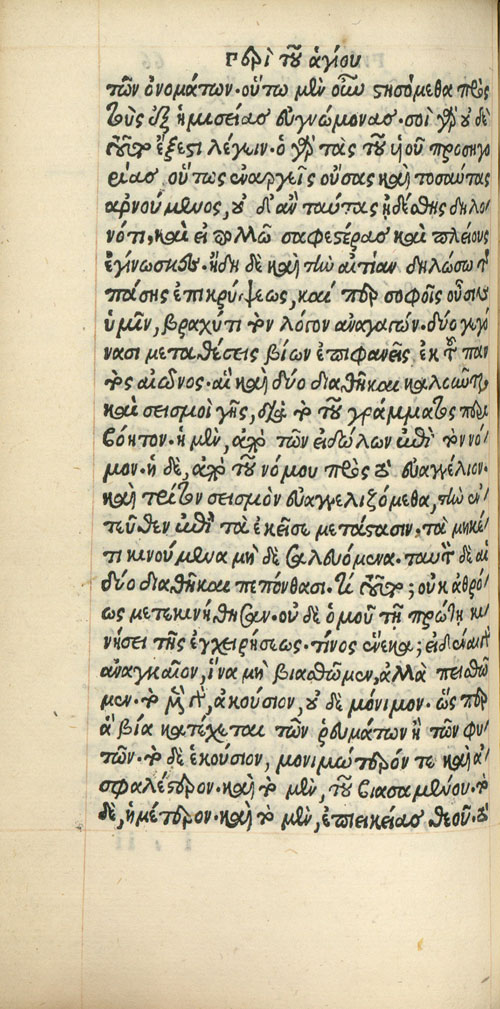 Γρηγορὶ τοῦ ἁγίου
τῶν ὀνομάτων. οὕτω μὲν οὖν στησόμεθα πρὸς
τοὺς ἐξ ἡμισείας εὐγνώμονας. σοὶ γὰρ οὐδὲ
τοῦτο ἔξεστι λέγειν. ὁ γὰρ τὰς τοῦ ὑιοῦ προσηγο
ρίας οὕτως ἐναργεῖς οὔσας καὶ τοσαύτας
ἀρνούμενος, οὐ δ' ἂν ταύτας ἠδέσθης δηλο
νότι, καὶ εἰ πολλῶ σαφεστέρας καὶ πλείους
ἐγίνωσκες. ἤδη δὲ καὶ τὴν αἰτίαν δηλώσω τῆς
πάσης ἐπικρύψεως, καίπερ σοφοῖς οὖσιν
ὑμῖν, βραχύτι τὸν λόγον ἀναγαγών. δύο γεγό
νασι μεταθέσεις βίων ἐπιφανεῖς ἐκ τοῦ παν
τὸς αἰῶνος. αἳ καὶ δύο διαθῆκαι καλοῦνται
καὶ σεισμοὶ γῆς, διὰ τὸ τοῦ γράμματος περι
βόητον. ἡ μὲν, ἀπὸ τῶν εἰδώλων ἐπὶ τὸν νό
μον. ἡ δὲ, ἀπὸ τοῦ νόμου πρὸς τὸ εὐαγγέλιον.
καὶ τρίτον σεισμὸν εὐαγγελιζόμεθα, τὴν ἐν
τεῦθεν ἐπὶ τὰ ἐκεῖσε μετάστασιν. τὰ μηκέ
τι κινούμενα μὴ δὲ σαλευόμενα. ταυτὸν δὲ αἱ
δύο διαθῆκαι πεπόνθασι. τί τοῦτο; οὐκ ἀθρό
ως μετεκινήθησαν. οὐ δὲ ὁμοῦ τῆ πρώτη κι
νήσει τῆς ἐγχειρήσεως. τίνος ἕνεκα; εἰδέναι γὰρ
ἀναγκαῖον, ἵνα μὴ βιασθῶμεν, ἀλλὰ πεισθῶ
μεν. τὸ μὲν γὰρ, ἀκούσιον, οὐ δὲ μόνιμον. ὥσπερ
ἃ βία κατέχεται τῶν ῥευμάτων ἢ τῶν φυ
τῶν. τὸ δὲ ἑκούσιον, μονιμώτερόν τε καὶ ἀ
σφαλέστερον. καὶ τὸ μὲν, τοῦ βιασαμένου. τὸ
δὲ, ἡμέτερον. καὶ τὸ μὲν, ἐπιεικείας θεοῦ. τὸ